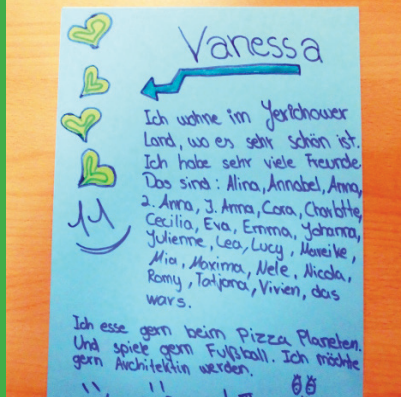 Vanessa
Ich wohne im Jerichower
Land, wo es sehr schön ist.
Ich habe sehr viele Freunde.
Das sind: Alina, Annabel, Anna,
2. Anna, 3. Anna, Cora, Charlotte,
Cecilia, Eva, Emma, Johanna,
Julienne, Lea, Lucy, Mareike,
Mia, Maxima, Nele, Nicola,
Romy, Tatjana, Vivien, das
wars.
Ich esse gern beim Pizza Planeten.
Und spiele gern Fußball. Ich möchte
gern Architektin werden.